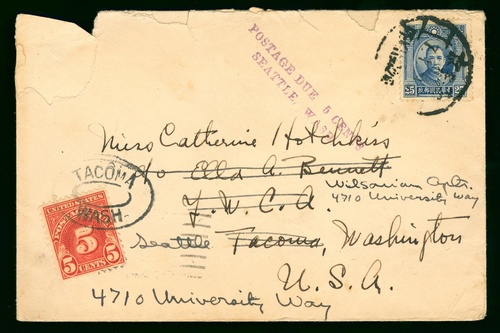 POSTAGE DUE 5 CENTS
SEATTLE, W
25 25
Miss Catherine Hotchkiss
c/o Ella A. Bennett
Wilsonian Apts.
Y.W.C.A. 4710 University Way
TACOMA
WASH.
Seattle Tacoma, Washington
UNITED STATES
POSTAGE
5
5 CENTS 5
U.S.A.
4710 University Way